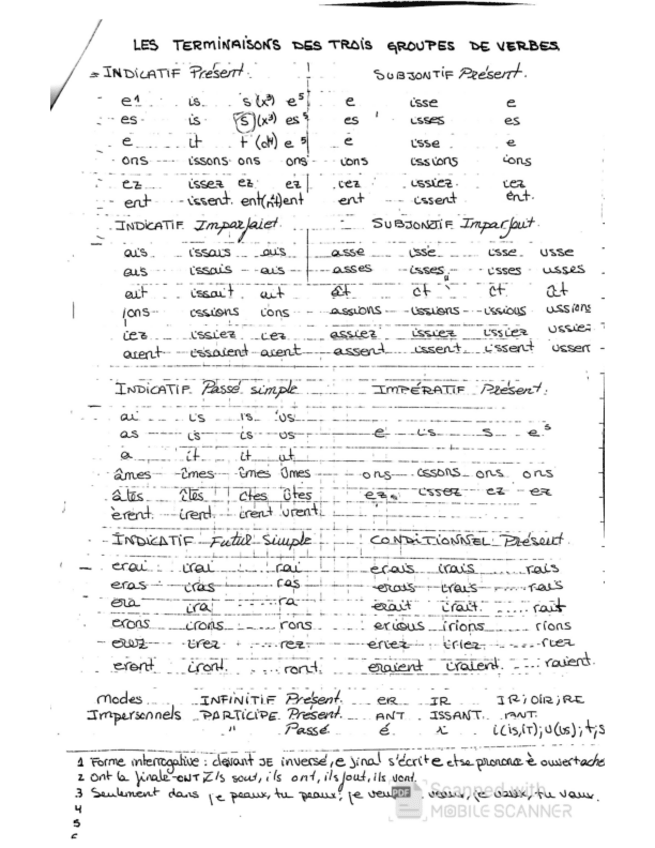 LES TERMINAISONS DES TROIS GROUPES DE VERBES
INDICATIF Présent. SUBJONTIF Présent.
e1 is s(x³) e⁵ e isse e
es is (s)(x³) es⁵ es isses es
e it t(d⁴) e⁵ e isse e
ons issons ons ons ions issions ions
ez issez ez ez iez issiez iez
ent issent ent(nt²) ent ent issent ent.
INDICATIF Imparfaiet. SUBJONTIF Imparfait.
ais issais ais asse isse isse usse
ais issais ais asses isses isses usses
ait issait ait ât ît ît ût
ions issions ions assions issions issions ussions
iez issiez iez assiez issiez issiez ussiez
aient issaient aient assent issent issent ussent
INDICATIF Passé simple IMPÉRATIF Présent.
ai is is us
as is is us e is s e⁵
a it it ut
âmes îmes îmes ûmes ons issons ons ons
âtes îtes îtes ûtes ez issez ez ez
èrent irent irent urent
INDICATIF Futur Simple CONDITIONNEL Présent.
erai irai rai erais irais rais
eras iras ras erais irais rais
era ira ra erait irait rait
erons irons rons erions irions rions
erez irez rez eriez iriez riez
eront iront ront eraient iraient raient.
Modes INFINITIF Présent. ER IR IR; OIR; RE
Impersonnels PARTICIPE Présent. ANT ISSANT. ANT.
" Passé é i i(is,iT); U(us); t; s
1 Forme interrogative : devant JE inversé, e final s'écrite et se prononce è ouvert
2 Ont la finale -ONT Ils sont, ils ont, ils font, ils vont.
3 Seulement dans je peux, tu peux; je veux, veux, je vaux, tu vaux.
4
5
PDF Scanned with
MOBILE SCANNER